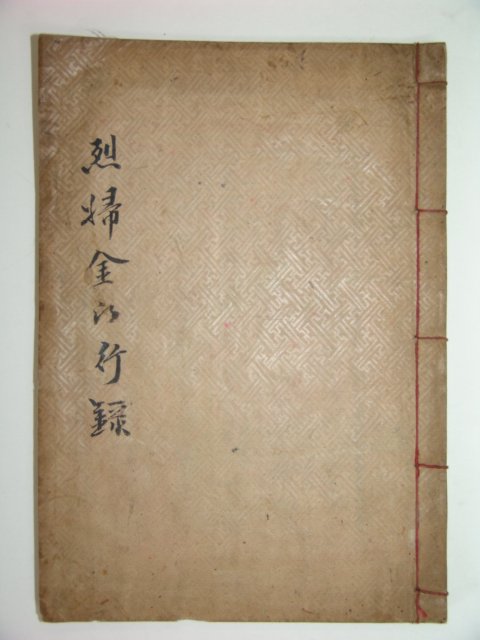 烈婦金氏行録